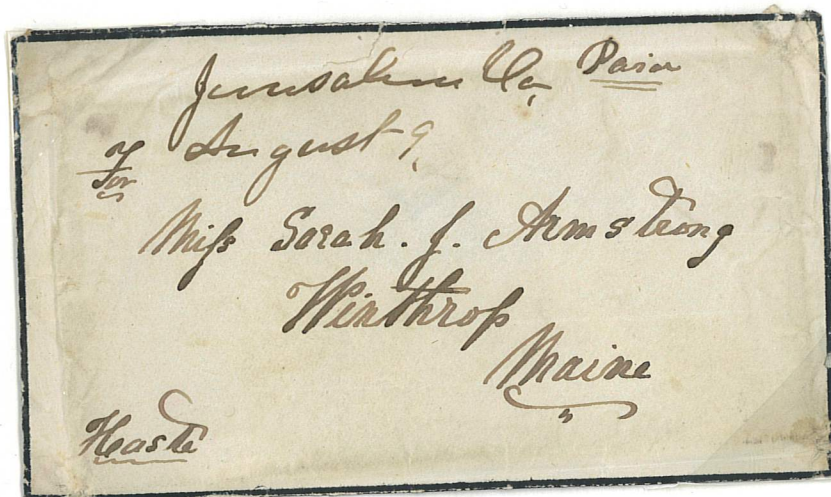 Jerusalem Va, Paid
August 9,
For
Miss Sarah. J. Armstrong
Winthrop
Maine
Haste